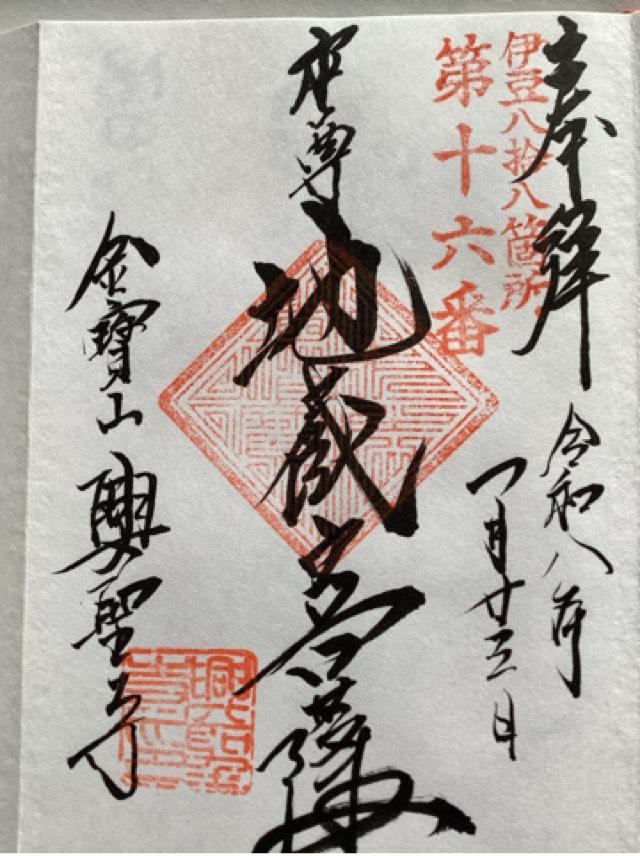 奉拝
令和八年
一月廿三日
伊豆八拾八箇所
第十六番
本尊
地蔵菩薩
金寶山
興聖寺